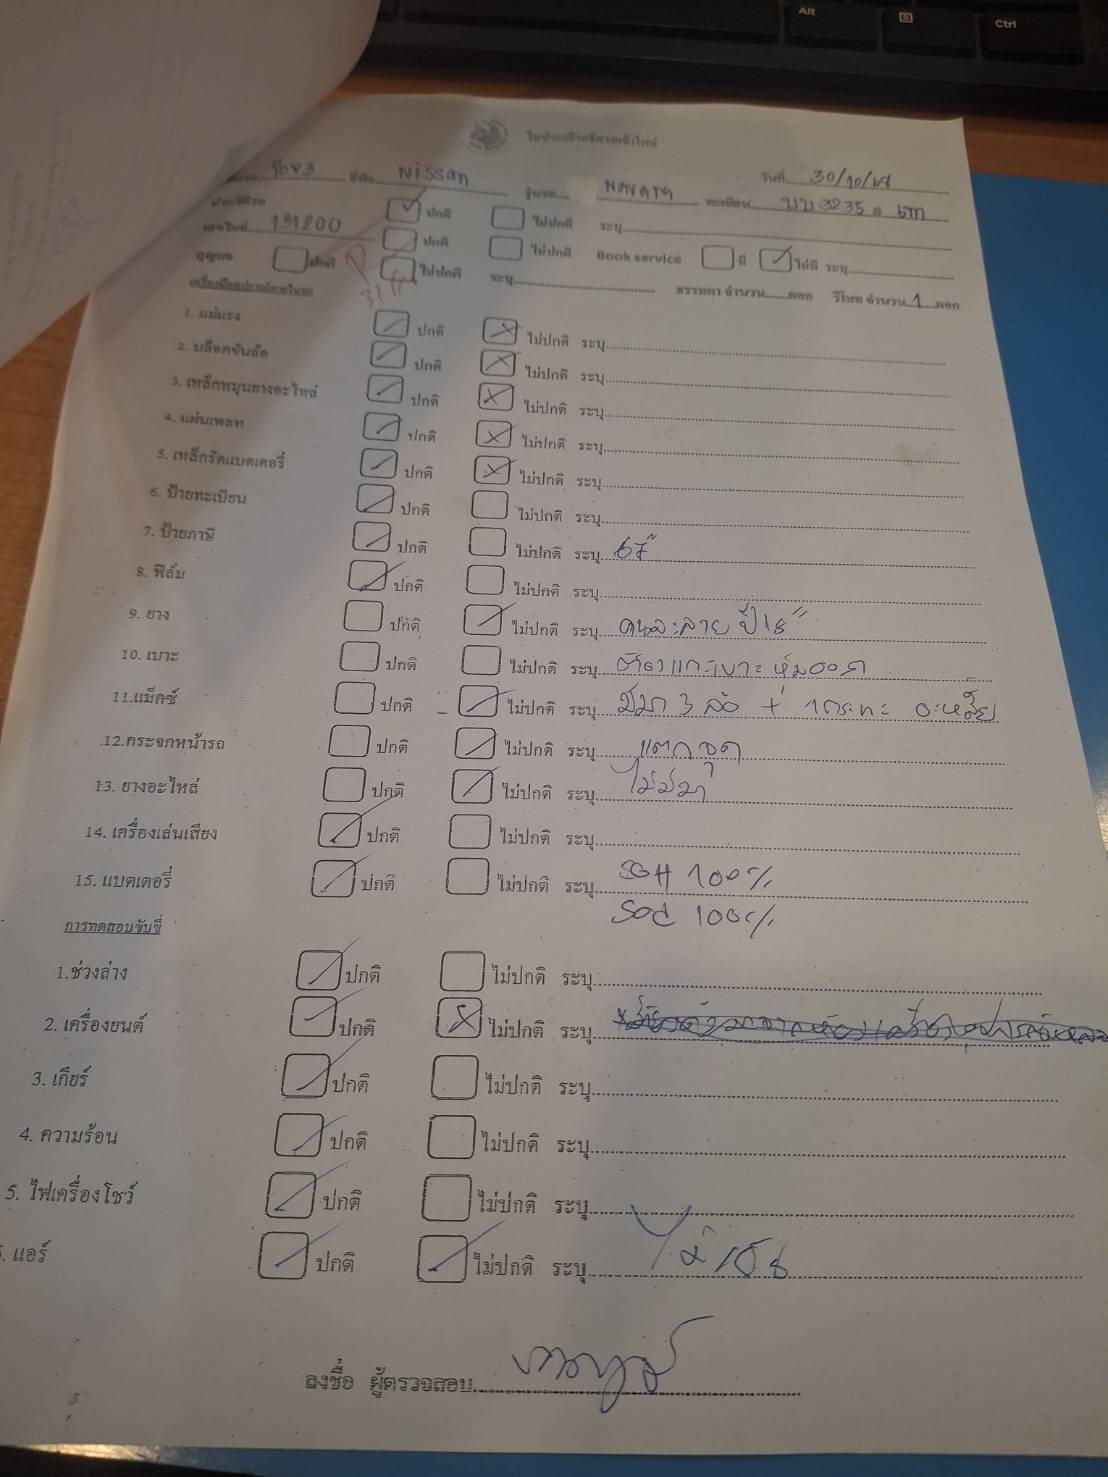 Alt
Ctrl
ใบประเมินซากรถเข้าใหม่
9083 ยี่ห้อ Nissan รุ่นรถ NAVARA ทะเบียน บบ 3235 วันที่ 30/10/68
ปกติ ไม่ปกติ ระบุ
เลขไมล์ 191200 ปกติ ไม่ปกติ Book service มี ไม่มี ระบุ
กุญแจ ปกติ ไม่ปกติ ระบุ ธรรมดา จำนวน ดอก รีโมท จำนวน 1 ดอก
1. แม่แรง ปกติ ไม่ปกติ ระบุ
2. บล็อกขันล้อ ปกติ ไม่ปกติ ระบุ
3. เหล็กหมุนยางอะไหล่ ปกติ ไม่ปกติ ระบุ
4. แผ่นเพลท ปกติ ไม่ปกติ ระบุ
5. เหล็กรัดแบตเตอรี่ ปกติ ไม่ปกติ ระบุ
6. ป้ายทะเบียน ปกติ ไม่ปกติ ระบุ
7. ป้ายภาษี ปกติ ไม่ปกติ ระบุ
8. ฟิล์ม ปกติ ไม่ปกติ ระบุ
9. ยาง ปกติ ไม่ปกติ ระบุ คนละลาย ปี 18"
10. เบาะ ปกติ ไม่ปกติ ระบุ
11. แม็คซ์ ปกติ ไม่ปกติ ระบุ มีมา 3 ล้อ + 1 กระทะ อะหลั่ย
12. กระจกหน้ารถ ปกติ ไม่ปกติ ระบุ แตก จุด
13. ยางอะไหล่ ปกติ ไม่ปกติ ระบุ ไม่มีมา
14. เครื่องเล่นเสียง ปกติ ไม่ปกติ ระบุ
15. แบตเตอรี่ ปกติ ไม่ปกติ ระบุ SOH 100%
SOC 100%
การทดสอบขับขี่
1. ช่วงล่าง ปกติ ไม่ปกติ ระบุ
2. เครื่องยนต์ ปกติ ไม่ปกติ ระบุ
3. เกียร์ ปกติ ไม่ปกติ ระบุ
4. ความร้อน ปกติ ไม่ปกติ ระบุ
5. ไฟเครื่องโชว์ ปกติ ไม่ปกติ ระบุ
6. แอร์ ปกติ ไม่ปกติ ระบุ ไม่เย็น
ลงชื่อ ผู้ตรวจสอบ